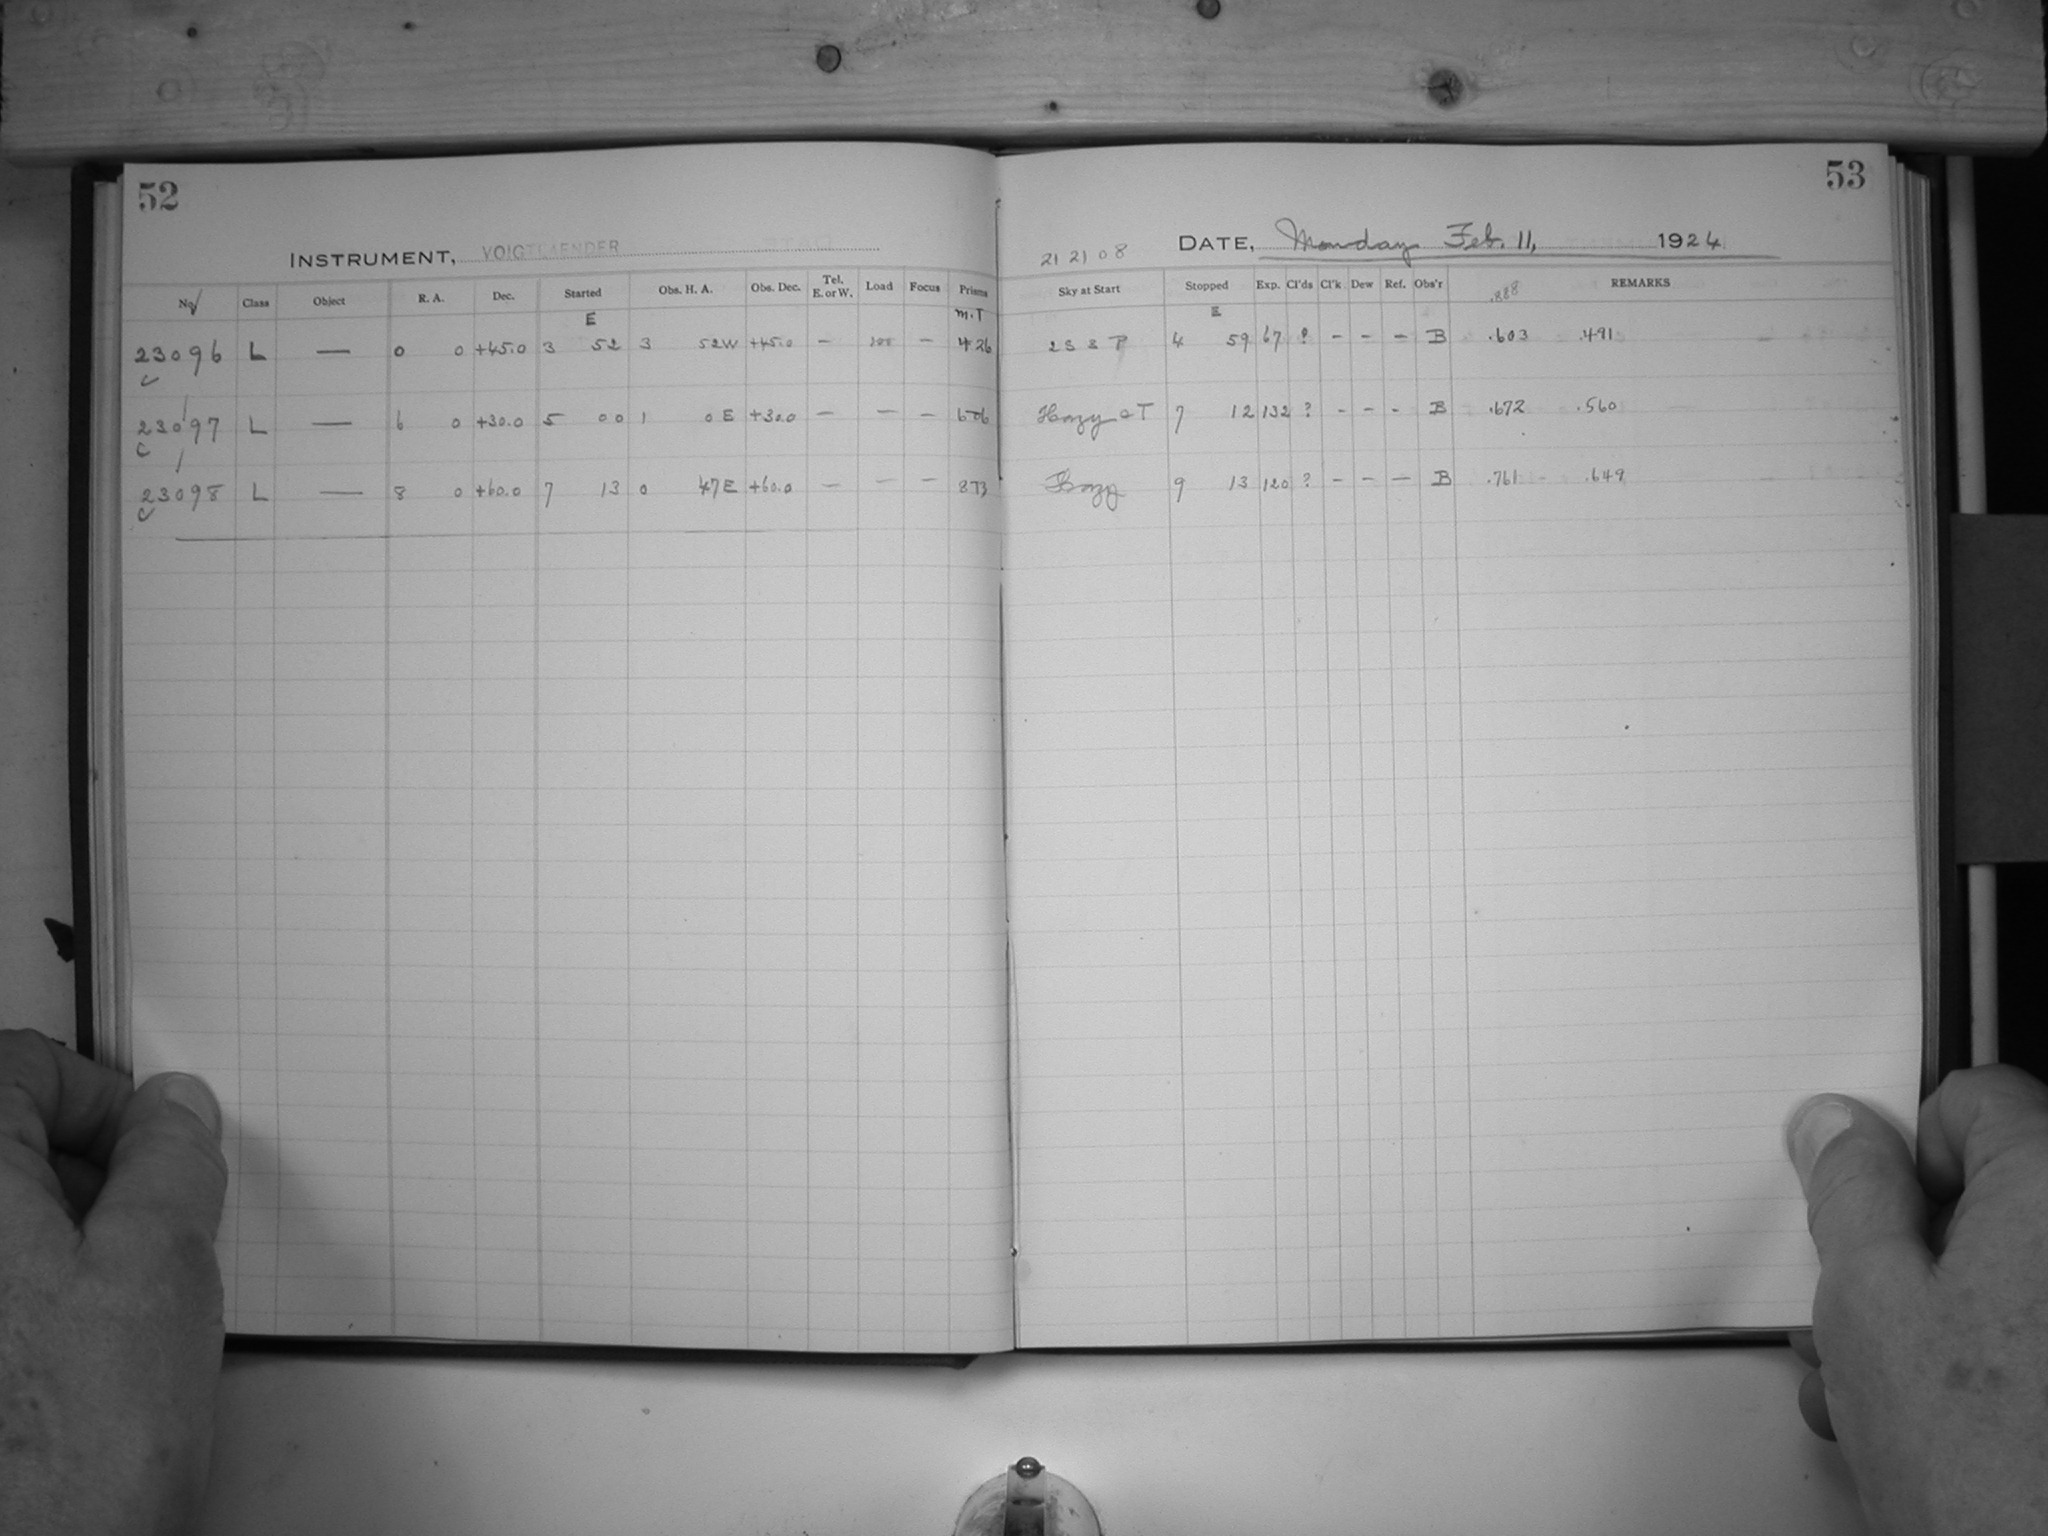 52
INSTRUMENT, VOIGTLAENDER
No. Class Object R. A. Dec. Started Obs. H. A. Obs. Dec. Tel. E. or W. Load Focus Prisms
E m.T
23096 L — 0 0 +45.0 3 52 3 52W +45.0 — — 426
23097 L — 6 0 +30.0 5 00 1 0E +30.0 — — — 606
23098 L — 8 0 +60.0 7 13 0 47E +60.0 — — — 873
53
21 21 08 DATE, Monday Feb. 11, 1924
Sky at Start Stopped Exp. Cl'ds Cl'k Dew Ref. Obs'r REMARKS
E .888
4 59 67 ? - - - B .603 .491
Hazy T 7 12 132 ? - - - B .672 .560
Hazy 9 13 120 ? - - - B .761 - .649